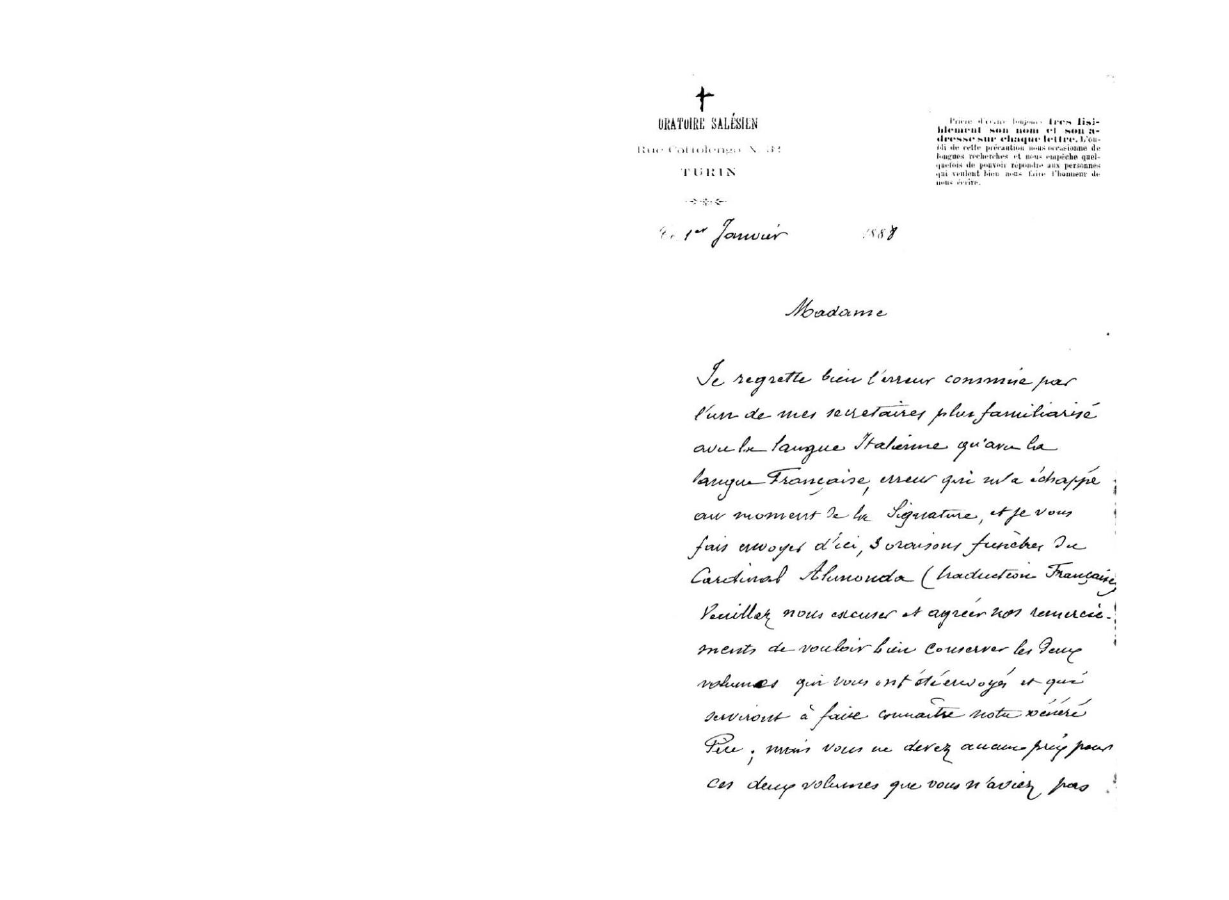 ORATOIRE SALÉSIEN
Rue Cottolengo N. 32
TURIN
Prière d'écrire toujours très lisi-
blement son nom et son a-
dresse sur chaque lettre. L'ou-
bli de cette précaution nous occasionne de
longues recherches et nous empêche quel-
quefois de pouvoir répondre aux personnes
qui veulent bien nous faire l'honneur de
nous écrire.
1er Janvier 1888
Madame
Je regrette bien l'erreur commise par
l'un de mes secretaires plus familiarisé
avec la langue Italienne qu'avec la
langue Française, erreur qui m'a échappé
au moment de la Signature, et je vous
fais envoyer d'ici, 3 oraisons funèbres du
Cardinal Alimonda (traduction Française)
Veuillez nous excuser et agréer nos remercie-
ments de vouloir bien conserver les deux
volumes qui vous ont été envoyés et qui
serviront à faire connaître notre vénéré
Père ; mais vous ne devez aucun prix pour
ces deux volumes que vous n'aviez pas